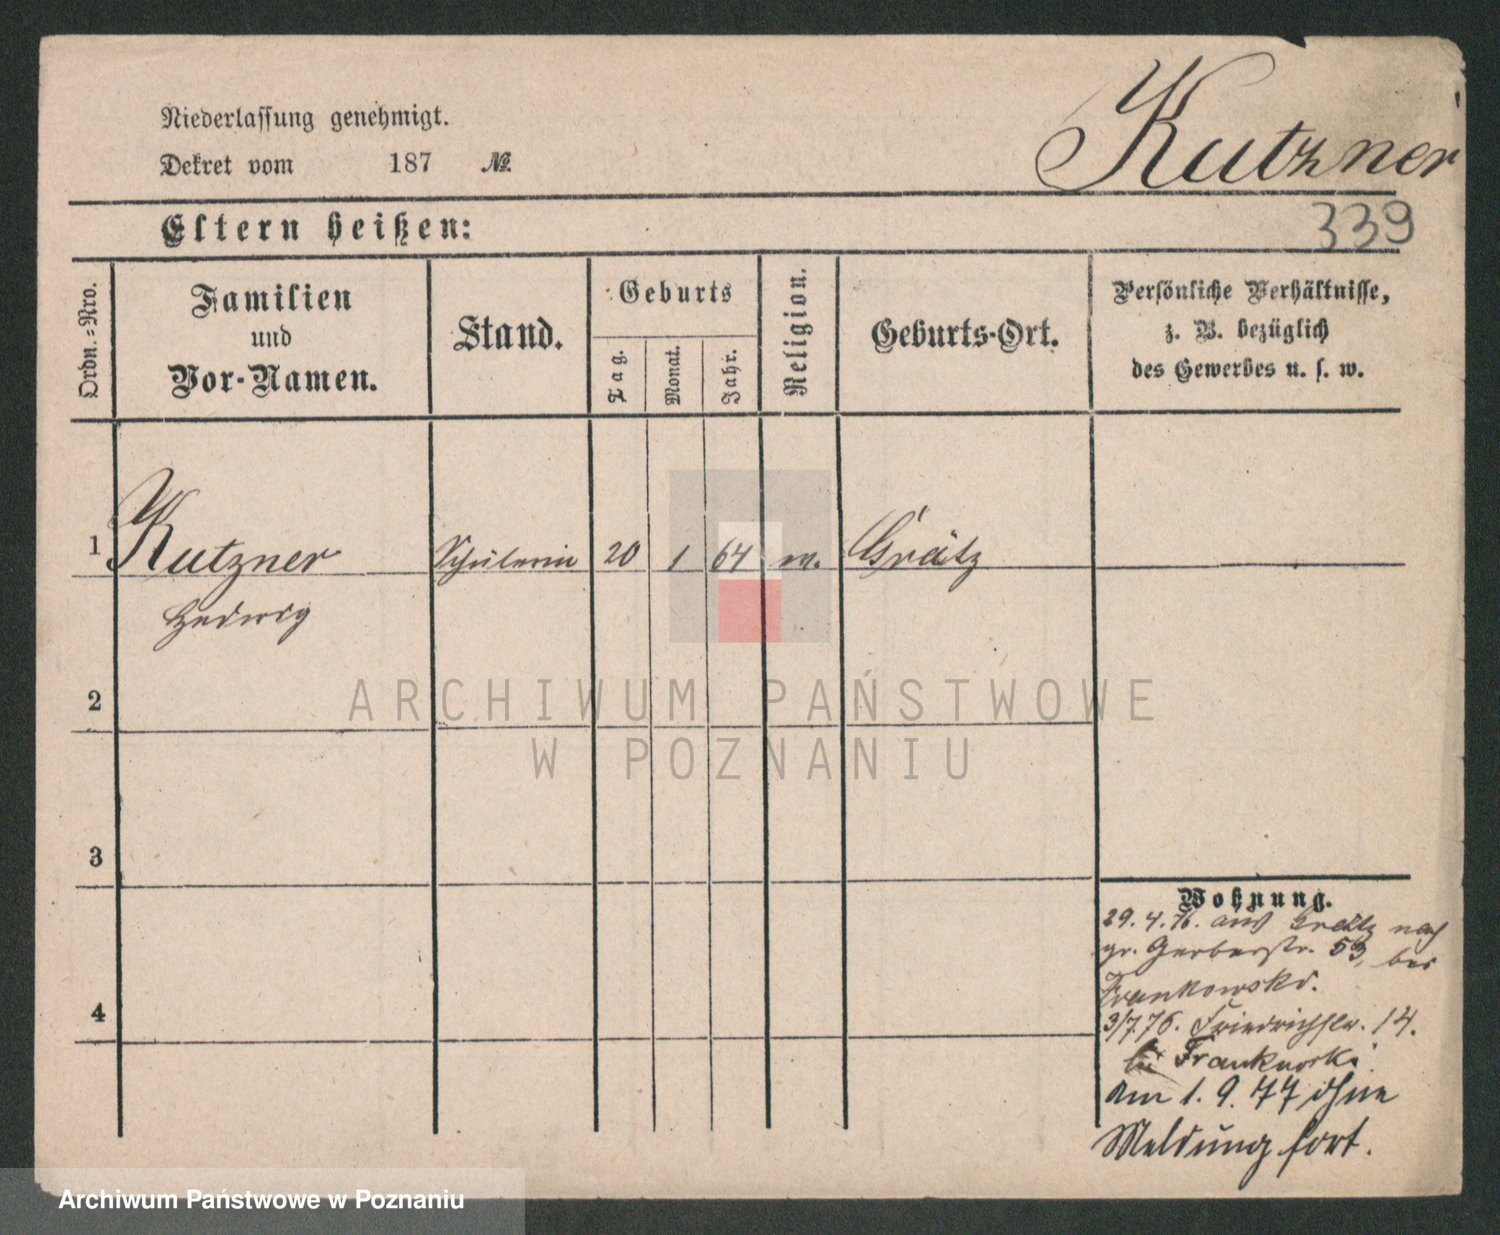 Niederlassung genehmigt.
Dekret vom 187 №
Kutzner
Eltern heißen:
339
Ordn.-Nro.
Familien
und
Vor-Namen.
Stand.
Geburts
Tag.
Monat.
Jahr.
Religion.
Geburts-Ort.
Persönliche Verhältnisse,
z. B. bezüglich
des Gewerbes u. s. w.
1 Kutzner Schülerin 20 1 64 m. Grätz
Hedwig
2
3
4
Wohnung.
29. 4. 76. aus Grätz nach
gr. Gerberstr. 53, bei
Frankowski.
3/7.76. Friedrichstr. 14.
bei Frankowski
am 1. 9. 77 ohne
Meldung fort.
ARCHIWUM PAŃSTWOWE
W POZNANIU
Archiwum Państwowe w Poznaniu